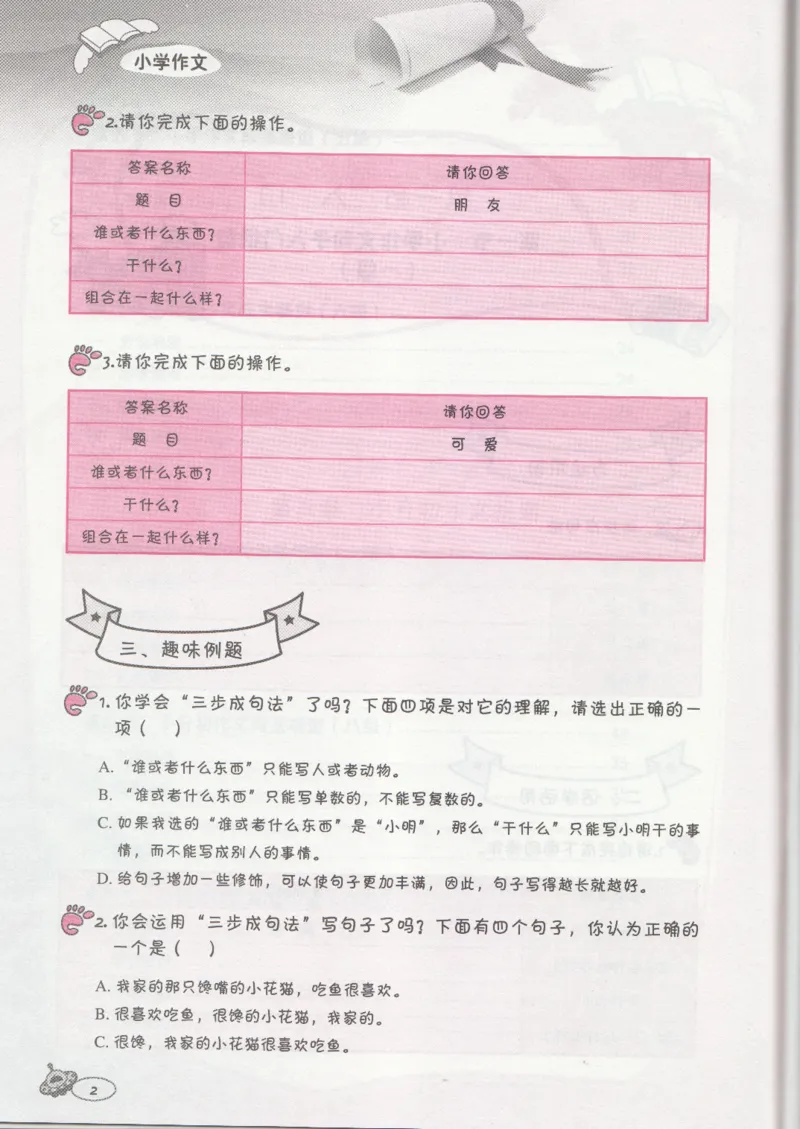 小学作文
2.请你完成下面的操作。
答案名称 请你回答
题 目 朋 友
谁或者什么东西?
干什么?
组合在一起什么样?
3.请你完成下面的操作。
答案名称 请你回答
题 目 可 爱
谁或者什么东西?
干什么?
组合在一起什么样?
三、趣味例题
1.你学会“三步成句法”了吗?下面四项是对它的理解,请选出正确的一
项( )
A.“谁或者什么东西”只能写人或者动物。
B.“谁或者什么东西”只能写单数的,不能写复数的。
C.如果我选的“谁或者什么东西”是“小明”,那么“干什么”只能写小明干的事
情,而不能写成别人的事情。
D.给句子增加一些修饰,可以使句子更加丰满,因此,句子写得越长就越好。
2.你会运用“三步成句法”写句子了吗?下面有四个句子,你认为正确的
一个是( )
A.我家的那只馋嘴的小花猫,吃鱼很喜欢。
B.很喜欢吃鱼,很馋的小花猫,我家的。
C.很馋,我家的小花猫很喜欢吃鱼。
2